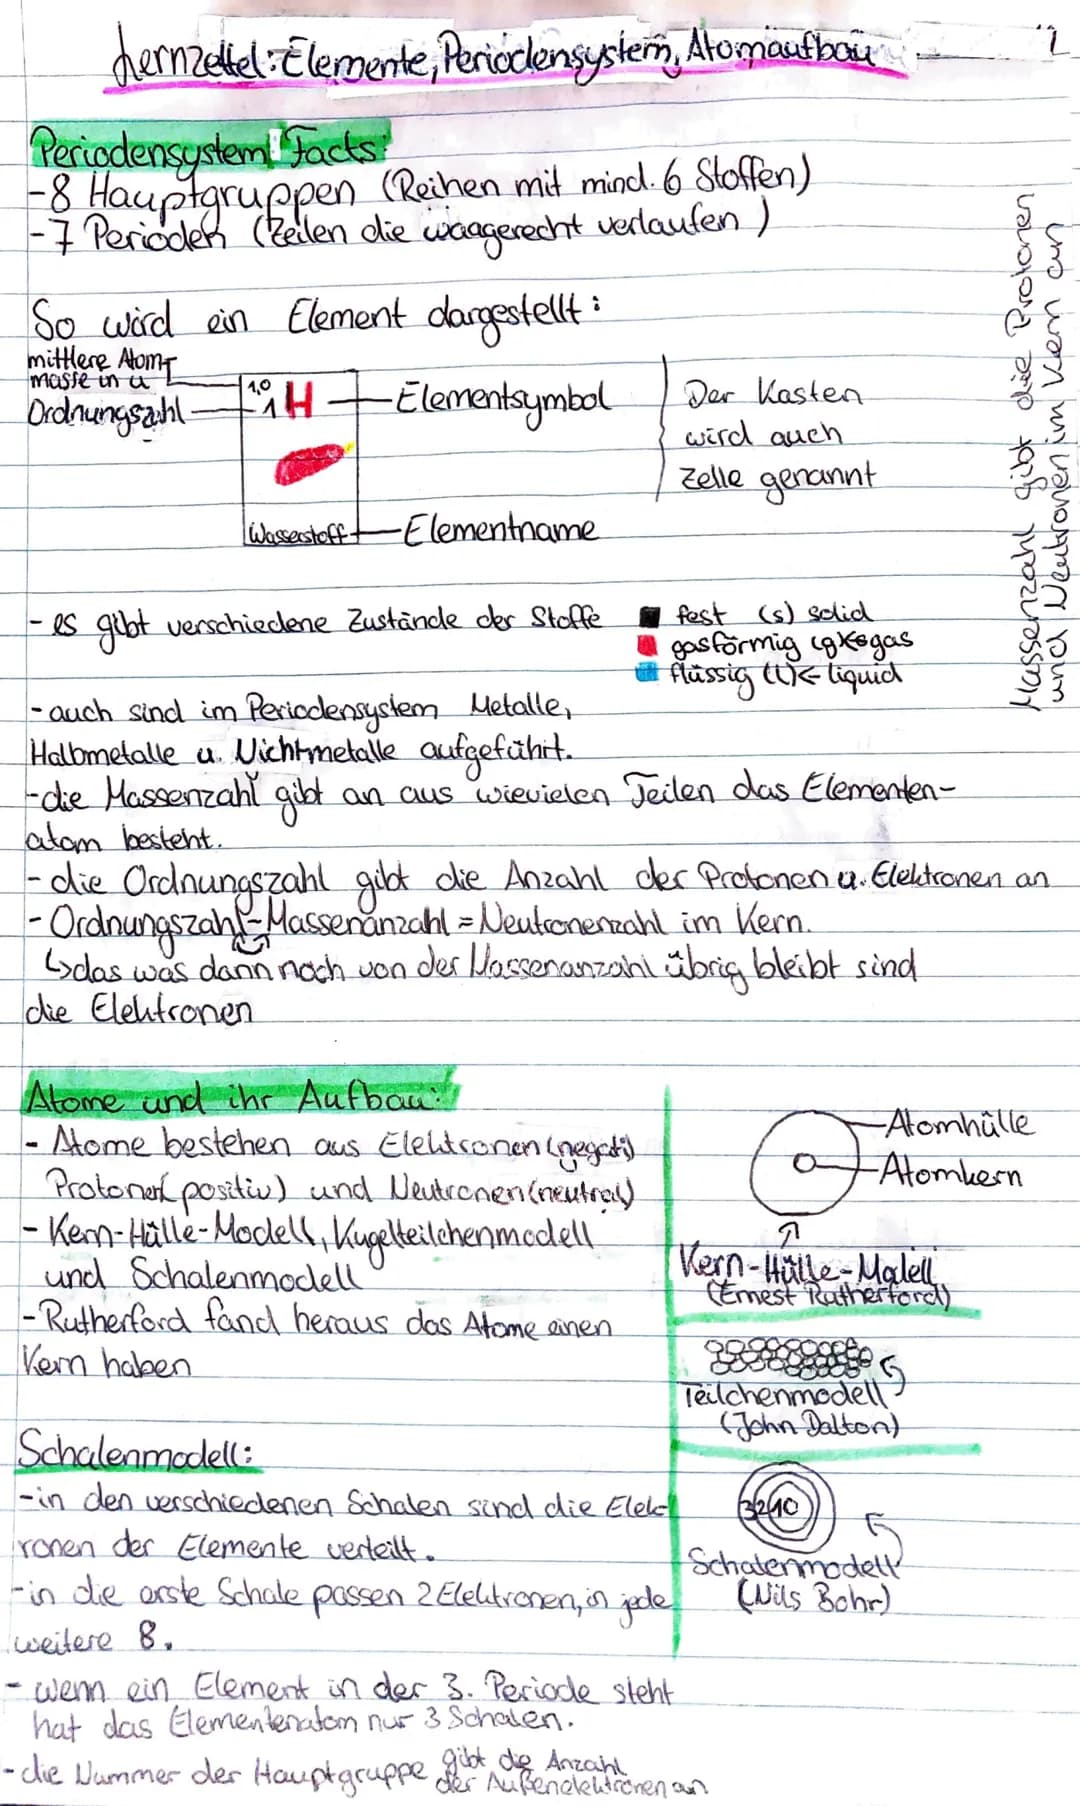 Lernzettel: Elemente, Periodensystem, Atomaufbau
1
Periodensystem Facts:
-8 Hauptgruppen (Reihen mit mind. 6 Stoffen)
-7 Perioden (Zeilen die waagerecht verlaufen)
So wird ein Element dargestellt:
mittlere Atom-
masse in u
Ordnungszahl
1,0
1 H
Elementsymbol
Wasserstoff
Elementname
Der Kasten
wird auch
Zelle genannt
Massenzahl gibt die Protonen
und Neutronen im Kern an
- es gibt verschiedene Zustände der Stoffe
fest (s) solid
gasförmig (g)←gas
flüssig (l)← liquid
- auch sind im Periodensystem Metalle,
Halbmetalle u. Nichtmetalle aufgeführt.
-die Massenzahl gibt an aus wievielen Teilen das Elementen-
atom besteht.
- die Ordnungszahl gibt die Anzahl der Protonen u. Elektronen an
- Ordnungszahl-Massenanzahl = Neutronenzahl im Kern.
↳das was dann noch von der Massenanzahl übrig bleibt sind
die Elektronen
Atome und ihr Aufbau:
- Atome bestehen aus Elektronen (negativ)
Protonen (positiv) und Neutronen (neutral)
- Kern-Hülle-Modell, Kugelteilchenmodell
und Schalenmodell
-Rutherford fand heraus das Atome einen
Kern haben
Atomhülle
Atomkern
Kern-Hülle-Modell
(Ernest Rutherford)
Teilchenmodell
(John Dalton)
3210
Schalenmodell
(Nils Bohr)
Schalenmodell:
-in den verschiedenen Schalen sind die Elek-
ronen der Elemente verteilt.
-in die erste Schale passen 2 Elektronen, in jede
weitere 8.
- wenn ein Element in der 3. Periode steht
hat das Elementenatom nur 3 Schalen.
- die Nummer der Hauptgruppe gibt die Anzahl
der Außenelektronen an